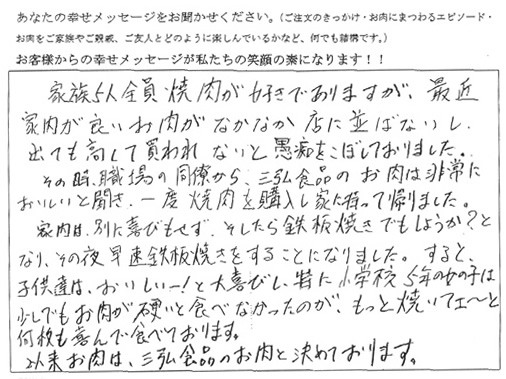 あなたの幸せメッセージをお聞かせください。(ご注文のきっかけ・お肉にまつわるエピソード・
お肉をご家族やご親戚、ご友人とどのように楽しんでいるかなど、何でも結構です。)
お客様からの幸せメッセージが私たちの笑顔の素になります!!
家族5人全員焼肉が好きでありますが、最近
家内が良いお肉がなかなか店に並ばないし、
出ても高して買われないと愚痴をこぼしておりました。
その時、職場の同僚から、三弘食品のお肉は非常に
おいしいと聞き、一度焼肉を購入し家に持って帰りました。
家内は、別に喜びもせず、そしたら鉄板焼きでもしようか?と
なり、その夜早速鉄板焼きをすることになりました。すると、
子供達は、おいしいー!と大喜びし、特に小学校5年の女の子は
少しでもお肉が硬いと食べなかったのが、もっと焼いてェ〜と
何枚も喜んで食べております。
以来お肉は、三弘食品のお肉と決めております。